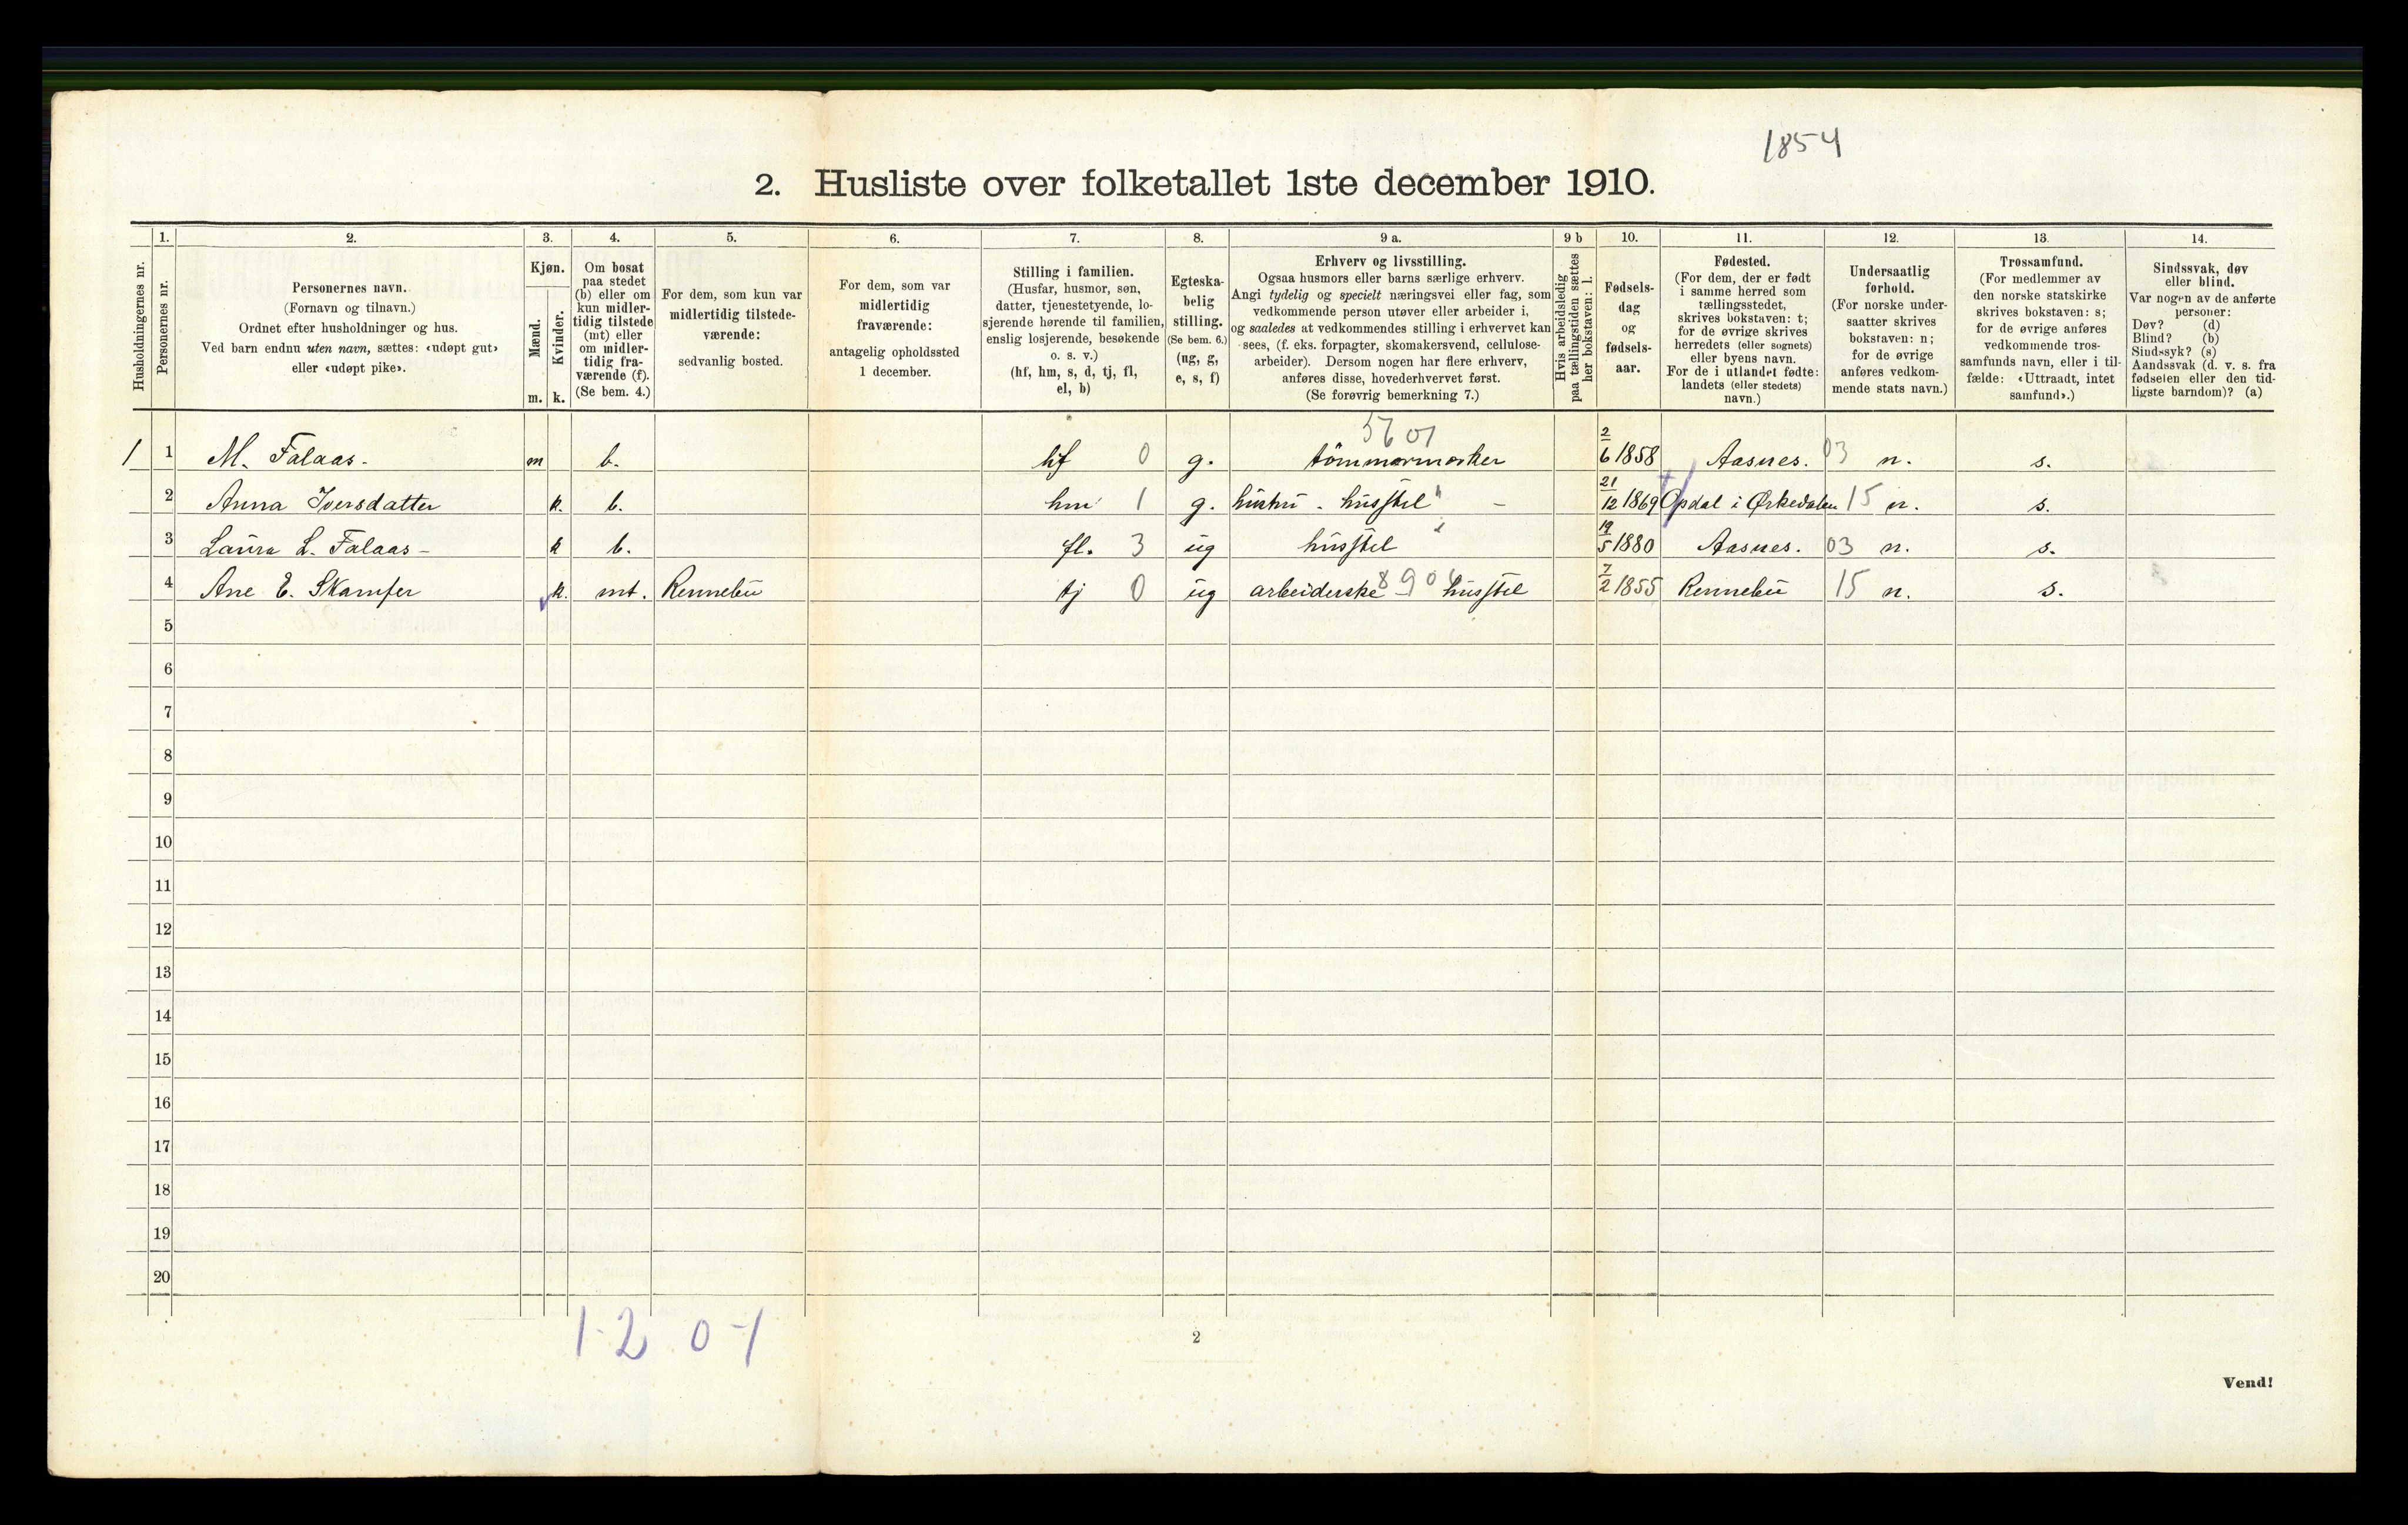 1854
2. Husliste over folketallet 1ste december 1910.
Husholdningernes nr.
1.
Personernes nr.
2.
Personernes navn.
(Fornavn og tilnavn.)
Ordnet efter husholdninger og hus.
Ved barn endnu uten navn, sættes: «udøpt gut»
eller «udøpt pike».
3.
Kjøn.
Mænd.
Kvinder.
m.
k.
4.
Om bosat
paa stedet
(b) eller om
kun midler-
tidig tilstede
(mt) eller
om midler-
tidig fra-
værende (f).
(Se bem. 4.)
5.
For dem, som kun var
midlertidig tilstede-
værende:
sedvanlig bosted.
6.
For dem, som var
midlertidig
fraværende:
antagelig opholdssted
1 december.
7.
Stilling i familien.
(Husfar, husmor, søn,
datter, tjenestetyende, lo-
sjerende hørende til familien,
enslig losjerende, besøkende
o. s. v.)
(hf, hm, s, d, tj, fl,
el, b)
8.
Egteska-
belig
stilling.
(Se bem. 6.)
(ug, g,
e, s, f)
9 a.
Erhverv og livsstilling.
Ogsaa husmors eller barns særlige erhverv.
Angi tydelig og specielt næringsvei eller fag, som
vedkommende person utøver eller arbeider i,
og saaledes at vedkommendes stilling i erhvervet kan
sees, (f. eks. forpagter, skomakersvend, cellulose-
arbeider). Dersom nogen har flere erhverv,
anføres disse, hovederhvervet først.
(Se forøvrig bemerkning 7.)
9 b
Hvis arbeidsledig
paa tællingstiden sættes
her bokstaven: l.
10.
Fødsels-
dag
og
fødsels-
aar.
11.
Fødested.
(For dem, der er født
i samme herred som
tællingsstedet,
skrives bokstaven: t;
for de øvrige skrives
herredets (eller sognets)
eller byens navn.
For de i utlandet fødte:
landets (eller stedets)
navn.)
12.
Undersaatlig
forhold.
(For norske under-
saatter skrives
bokstaven: n;
for de øvrige
anføres vedkom-
mende stats navn.)
13.
Trossamfund.
(For medlemmer av
den norske statskirke
skrives bokstaven: s;
for de øvrige anføres
vedkommende tros-
samfunds navn, eller i til-
fælde: «Uttraadt, intet
samfund».)
14.
Sindssvak, døv
eller blind.
Var nogen av de anførte
personer:
Døv? (d)
Blind? (b)
Sindssyk? (s)
Aandssvak (d. v. s. fra
fødselen eller den tid-
ligste barndom)? (a)
5601
1 1 M. Falaas. m b. hf 0 g. tømmermerker 2/6 1858 Aasnes. 03 n. s.
2 Anna Iversdatter k. b. hm 1 g. hustru - husstel " - 21/12 1869 Opdal i Ørkedalen 15 n. s.
3 Laura L. Falaas - k b. fl. 3 ug husstel " 19/5 1880 Aasnes. 03 n. s.
4 Ane E. Skamfer k. mt. Rennebu tj 0 ug arbeiderske 890 husstel 7/2 1855 Rennebu 15 n. s.
5
6
7
8
9
10
11
12
13
14
15
16
17
18
19
20
1-2 0-1
2
Vend!